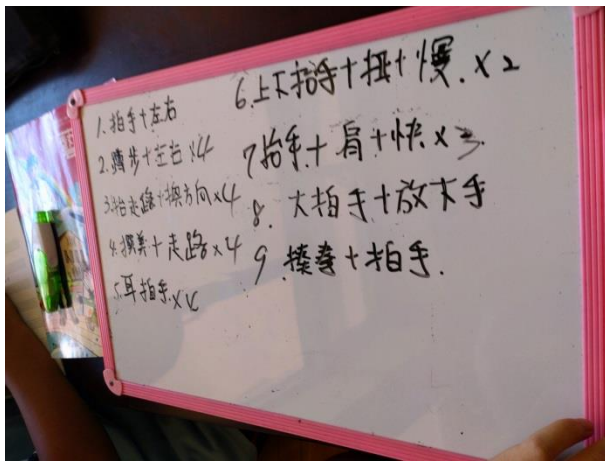 1.拍手+左右
2.踏步+左右×4
3.抬走路+换方向×4
4.摸美+走路×4
5.耳拍手.×4
6.上下拍手+扭+慢.×2
7抬手+肩+快×3.
8. 大拍手+放大手
9.揍拳+拍手.